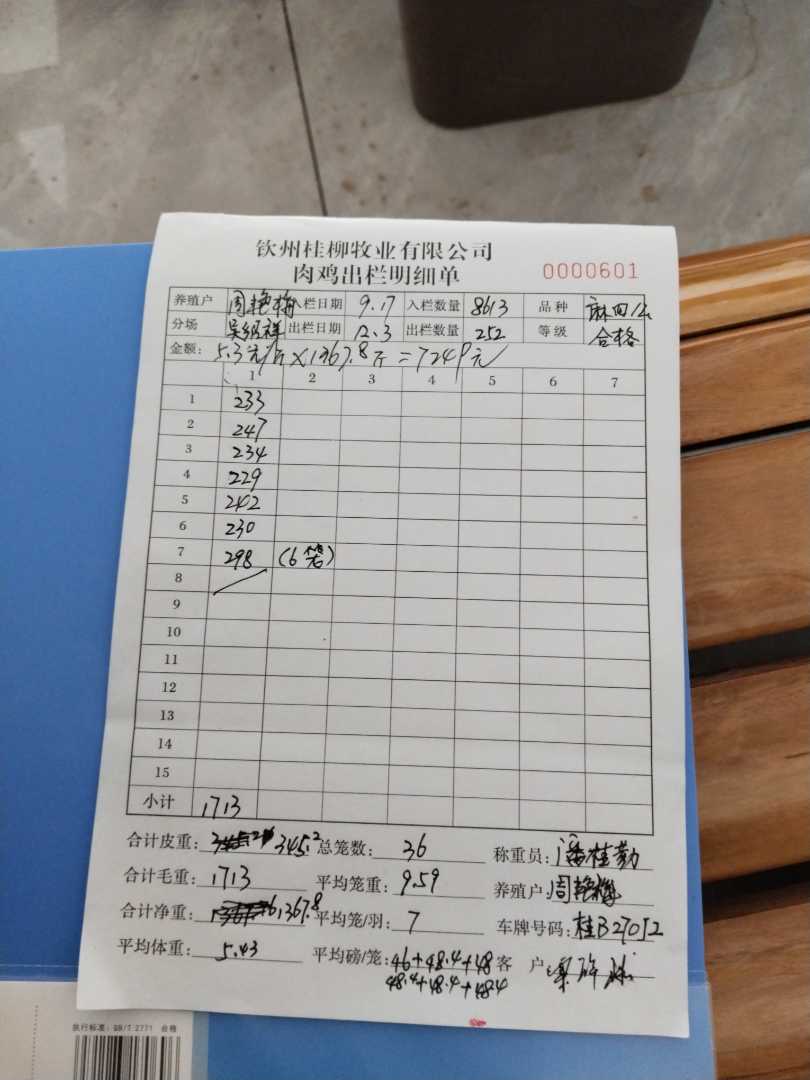 钦州桂柳牧业有限公司
肉鸡出栏明细单 0000601
养殖户 周艳梅 入栏日期 9.17 入栏数量 8613 品种 麻四公
分场 吴绍祥 出栏日期 12.3 出栏数量 252 等级 合格
金额: 5.3元/斤×1367.8斤=7249元
1 2 3 4 5 6 7
1 233
2 247
3 234
4 229
5 242
6 230
7 298 (6笼)
8
9
10
11
12
13
14
15
小计 1713
合计皮重: 345.2 总笼数: 36 称重员: 潘桂勤
合计毛重: 1713 平均笼重: 9.59 养殖户: 周艳梅
合计净重: 1367.8 平均笼/羽: 7 车牌号码: 桂B27052
平均体重: 5.43 平均磅/笼: 46+48.4+48 客户:
48.4+48.4+48.4
执行标准: QB/T 2771 合格